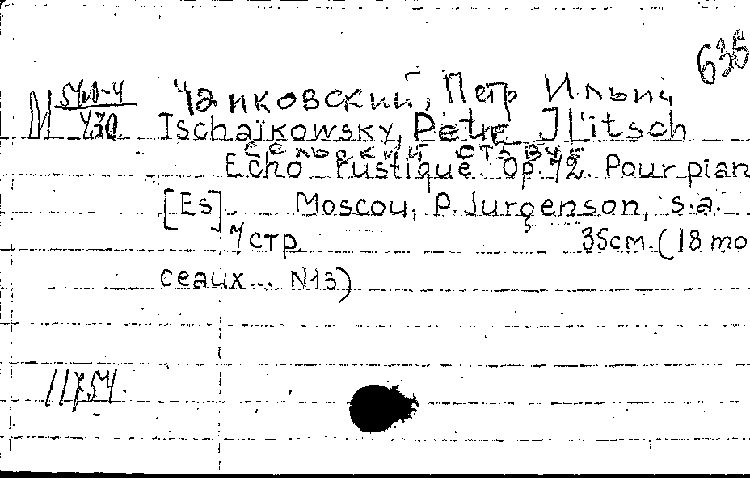 635
Чайковский, Петр Ильич
М 540-4
430
Tschaïkowsky, Petr Jl'itsch
Сельский отзвук
Echo rustique op. 72. Pour pian
[Es] Moscou, P. Jurgenson, s.a.
7 стр 35см. (18 mo
ceaux... N13)
11754